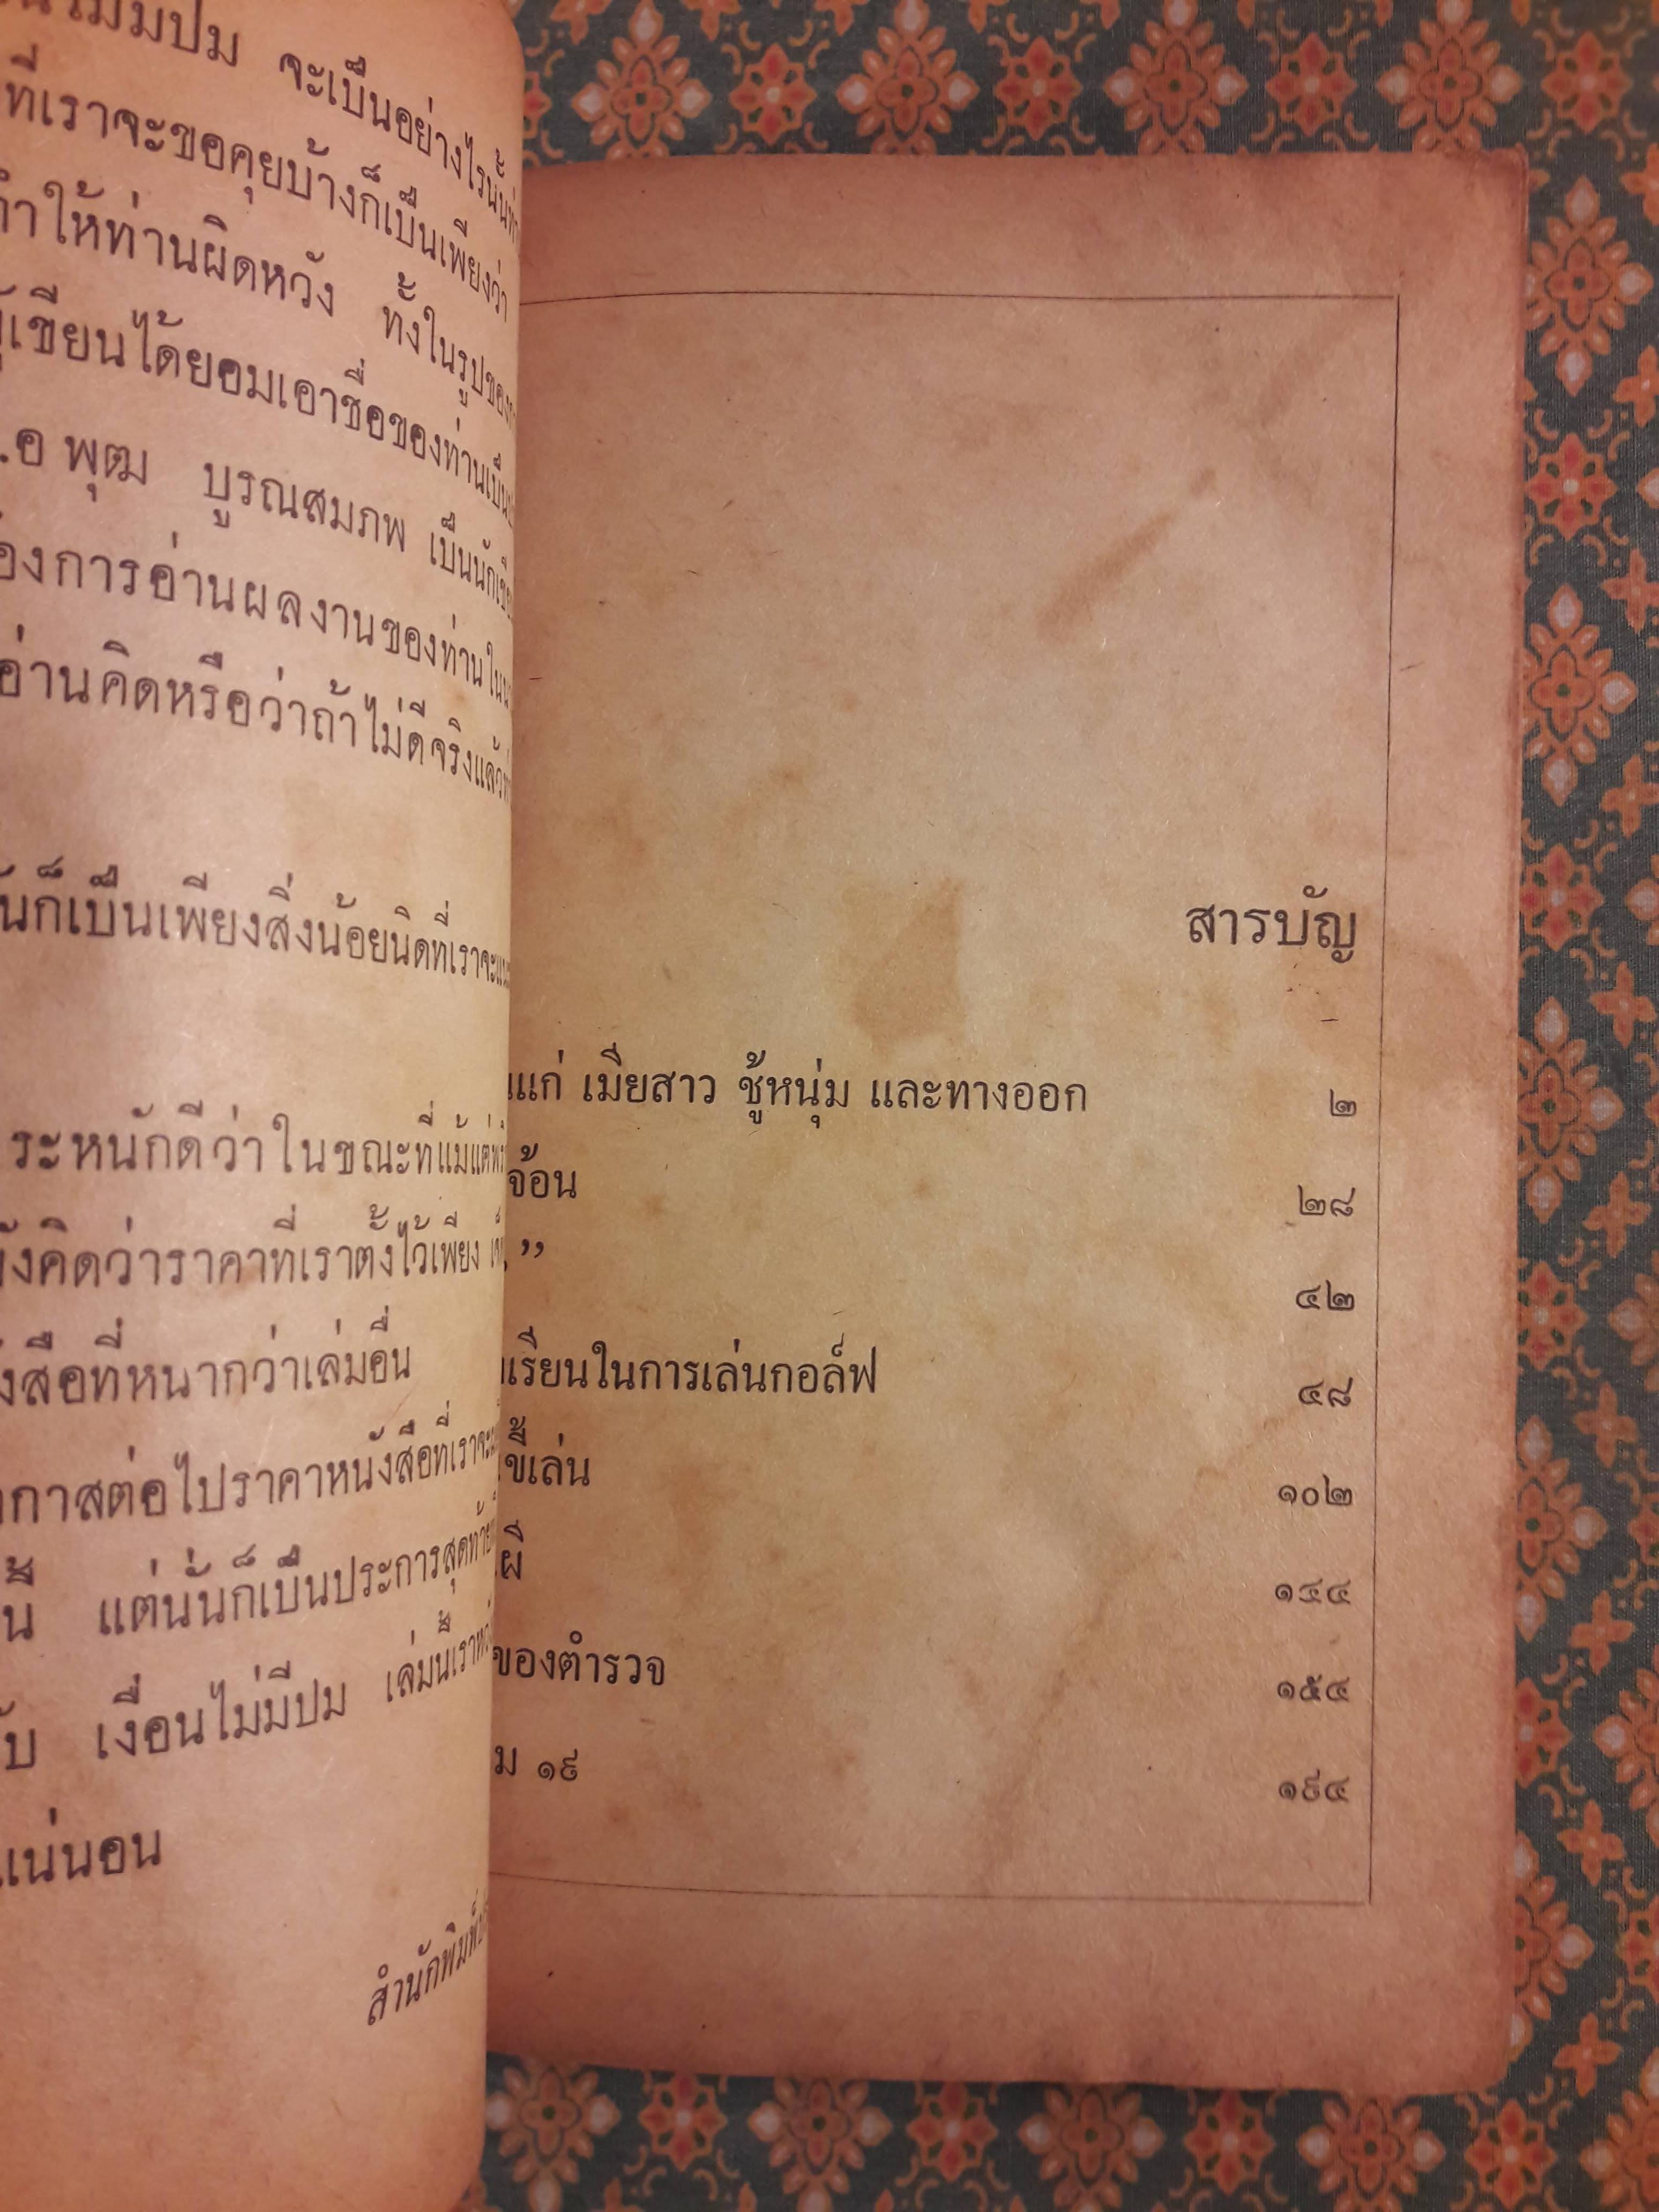 จะเป็นอย่างไรนั้น
ที่เราจะขอคุยบ้างก็เป็นเพียงว่า
ทำให้ท่านผิดหวัง ทั้งในรูปของ
เขียนได้ยอมเอาชื่อของท่านเป็น
.อ พุฒ บูรณสมภพ เป็นนักเขีย
องการอ่านผลงานของท่านใน
อ่านคิดหรือว่าถ้าไม่ดีจริงแล้ว
นก็เป็นเพียงสิ่งน้อยนิดที่เราจะ
ระหนักดีว่าในขณะที่แม้แต่
ังคิดว่าราคาที่เราตั้งไว้เพียง
ังสือที่หนากว่าเล่มอื่น
กาสต่อไปราคาหนังสือที่เราจะ
นี้ แต่นั่นก็เป็นประการสุดท้าย
ับ เงื่อนไม่มีปม เล่มนี้เรา
แน่นอน
สำนักพิมพ์
สารบัญ
แก่ เมียสาว ชู้หนุ่ม และทางออก ๒
จ้อน ๒๘
” ๔๒
เรียนในการเล่นกอล์ฟ ๔๘
ขี้เล่น ๑๐๒
ผี ๑๔๔
ของตำรวจ ๑๕๔
ม ๑๙ ๑๙๔